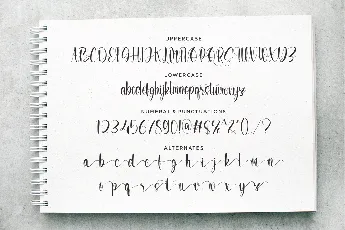 UPPERCASE
ABCDEFGHIJKLMNOPQRSTUVWXYZ
LOWERCASE
abcdefghijklmnopqrstuvwxyz
NUMERAL & PUNCTUATIONS
1234567890!@#$%^&*()_/?
ALTERNATES
a b c d e f g h i j k l m n
o p q r s t u v w x y z